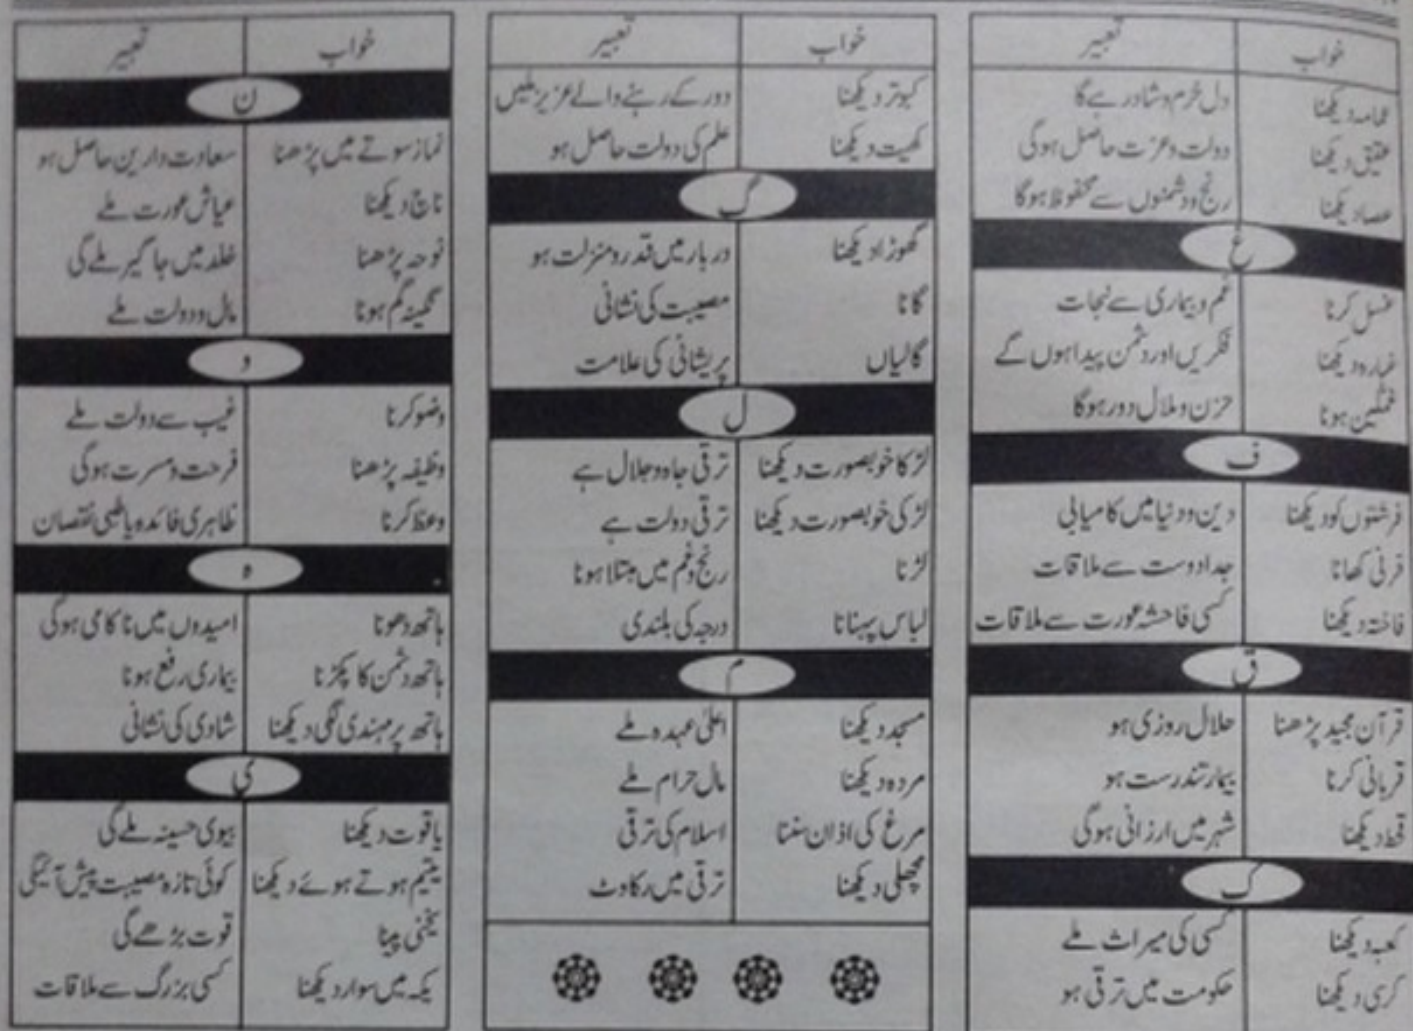 خواب تعبیر
عمامہ دیکھنا دل خرم و شاد رہے گا
عقیق دیکھنا دولت و عزت حاصل ہوگی
عصا دیکھنا رنج و دشمنوں سے محفوظ ہوگا
غ
غسل کرنا غم و بیماری سے نجات
غبارہ دیکھنا فکریں اور دشمن پیدا ہوں گے
غمگین ہونا حزن و ملال دور ہوگا
ف
فرشتوں کو دیکھنا دین و دنیا میں کامیابی
فرنی کھانا جدا دوست سے ملاقات
فاختہ دیکھنا کسی فاحشہ عورت سے ملاقات
ق
قرآن مجید پڑھنا حلال روزی ہو
قربانی کرنا بیمار تندرست ہو
قحط دیکھنا شہر میں ارزانی ہوگی
ک
کعبہ دیکھنا کسی کی میراث ملے
کرسی دیکھنا حکومت میں ترقی ہو
خواب تعبیر
کبوتر دیکھنا دور کے رہنے والے عزیز ملیں
کھیت دیکھنا علم کی دولت حاصل ہو
گ
گھوڑا دیکھنا دربار میں قدر و منزلت ہو
گانا مصیبت کی نشانی
گالیاں پریشانی کی علامت
ل
لڑکا خوبصورت دیکھنا ترقی جاہ و جلال ہے
لڑکی خوبصورت دیکھنا ترقی دولت ہے
لڑنا رنج و غم میں مبتلا ہونا
لباس پہنانا درجہ کی بلندی
م
مسجد دیکھنا اعلیٰ عہدہ ملے
مردہ دیکھنا مال حرام ملے
مرغ کی اذان سننا اسلام کی ترقی
مچھلی دیکھنا ترقی میں رکاوٹ
خواب تعبیر
ن
نماز سوتے میں پڑھنا سعادت دارین حاصل ہو
ناچ دیکھنا عیاش عورت ملے
نوحہ پڑھنا خلد میں جاگیر ملے گی
نگینہ گم ہونا مال و دولت ملے
و
وضو کرنا غیب سے دولت ملے
وظیفہ پڑھنا فرحت و مسرت ہوگی
وعظ کرنا ظاہری فائدہ باطنی نقصان
ہ
ہاتھ دھونا امیدوں میں ناکامی ہوگی
ہاتھ دشمن کا پکڑنا بیماری رفع ہونا
ہاتھ پر مہندی لگی دیکھنا شادی کی نشانی
ی
یاقوت دیکھنا بیوی حسینہ ملے گی
یتیم ہوتے ہوئے دیکھنا کوئی تازہ مصیبت پیش آئیگی
یخنی پینا قوت بڑھے گی
یکہ میں سوار دیکھنا کسی بزرگ سے ملاقات